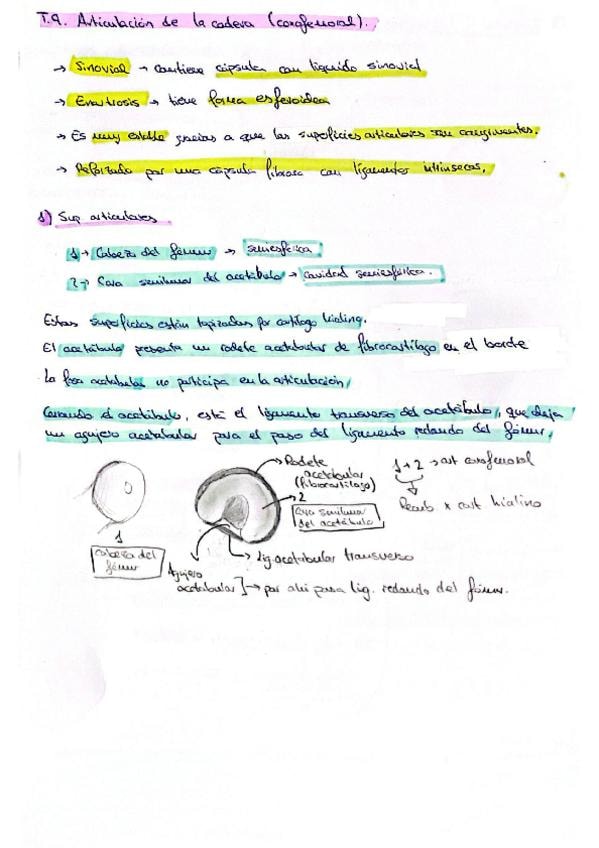 T.9. Articulación de la cadera (coxofemoral).
→ Sinovial → contiene cápsula con líquido sinovial
→ Enartrosis → tiene forma esferoidea
→ Es muy estable gracias a que las superficies articulares son congruentes.
→ Reforzado por una cápsula fibrosa con ligamentos intrínsecos.
1) Sup articulares.
1 → Cabeza del fémur → semiesférica
2 → Cara semilunar del acetábulo → cavidad semiesférica.
Estas superficies están tapizadas por cartílago hialino.
El acetábulo presenta un rodete acetabular de fibrocartílago en el borde
La fosa acetabular no participa en la articulación
Cerrando el acetábulo, está el ligamento transverso del acetábulo, que deja
un agujero acetabular para el paso del ligamento redondo del fémur.
→ Rodete
acetabular
(fibrocartílago)
→ 2
Cara semilunar
del acetábulo
1 + 2 → art coxofemoral
Recub x cart hialino
1
Cabeza del
fémur
→ Lig. acetabular transverso
Agujero
acetabular ] → por ahí pasa lig. redondo del fémur.